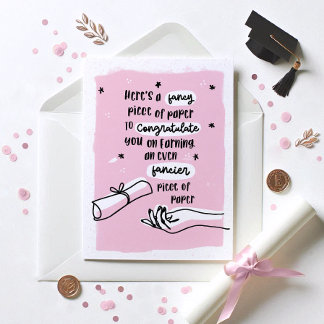 Here's a fancy
piece of paper
to congratulate
you on earning
an even
fancier
piece of
paper